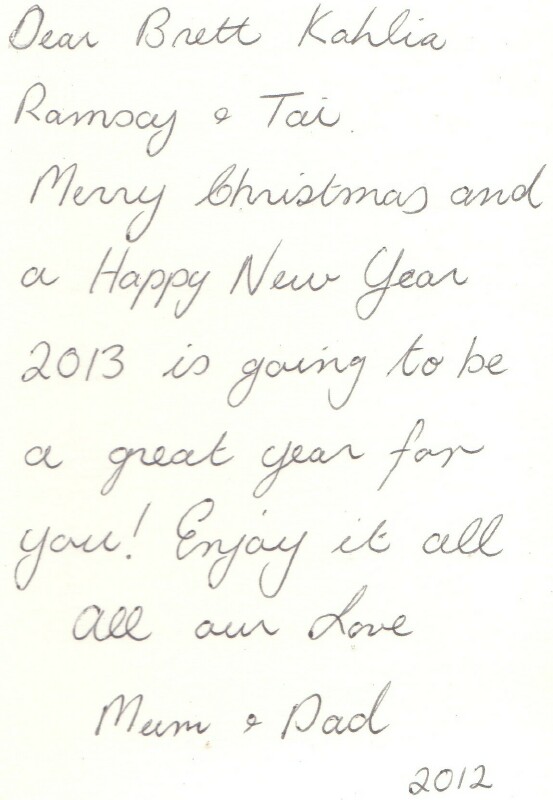 Dear Brett Kahlia
Ramsay & Tai
Merry Christmas and
a Happy New Year
2013 is going to be
a great year for
you! Enjoy it all
All our Love
Mum & Dad
2012